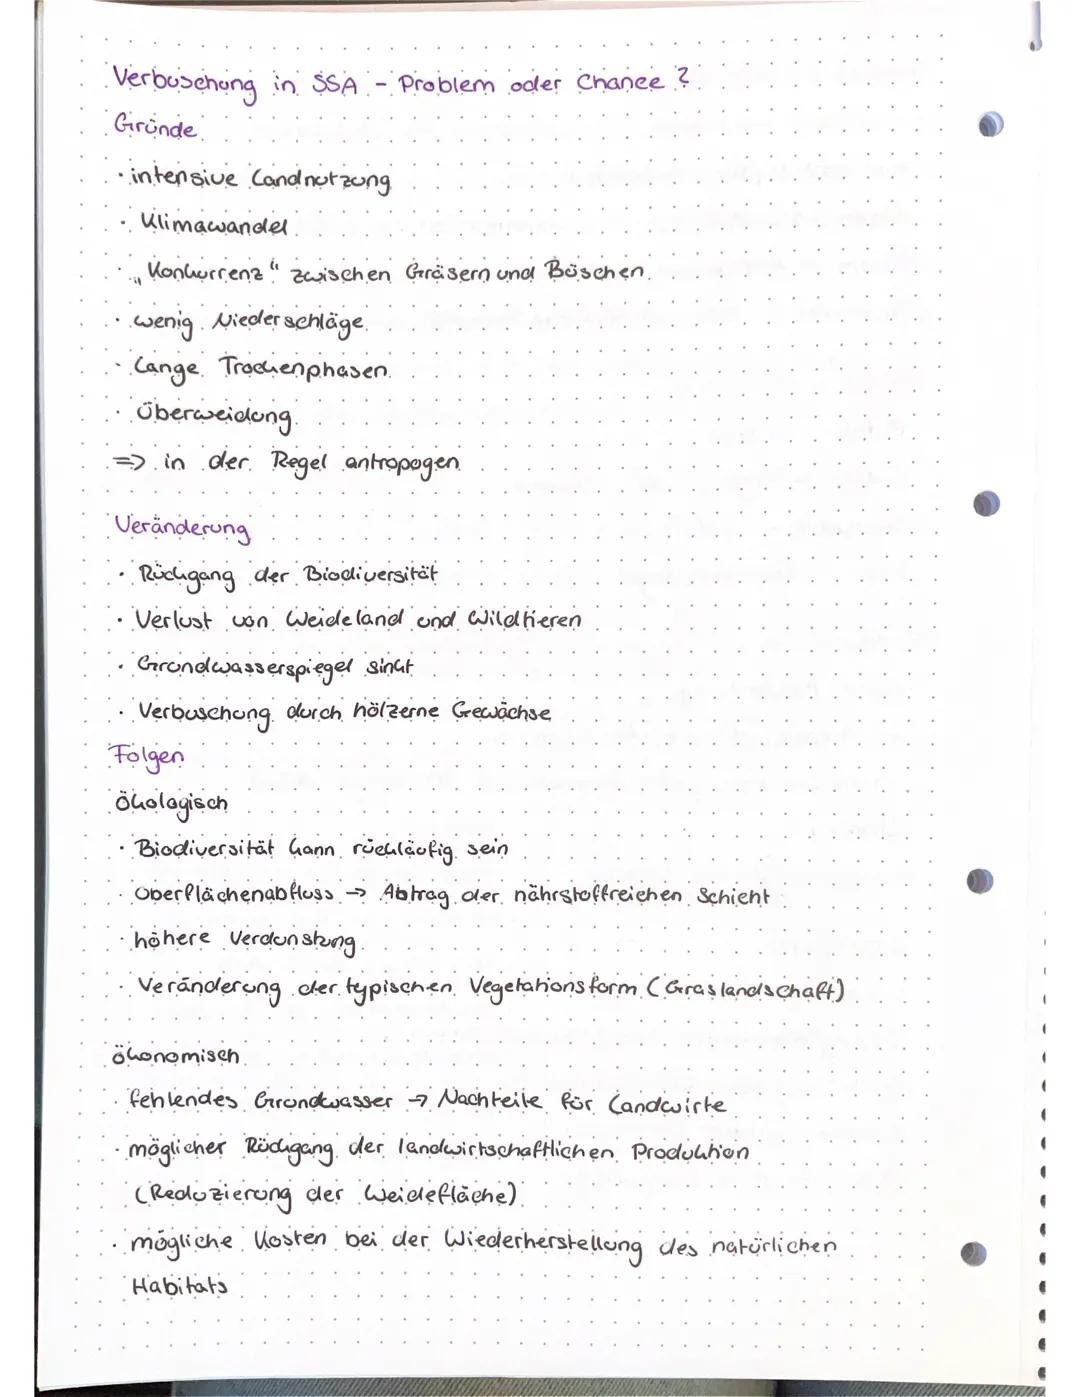 Verbuschung in SSA - Problem oder Chance ?
Gründe
· intensive Landnutzung
· Klimawandel
· „Konkurrenz“ zwischen Gräsern und Büschen
· wenig Niederschläge
· Lange Trockenphasen
· Überweidung
=> in der Regel antropogen
Veränderung
· Rückgang der Biodiversität
· Verlust von Weideland und Wildtieren
· Grundwasserspiegel sinkt
· Verbuschung durch hölzerne Gewächse
Folgen
Ökologisch
· Biodiversität kann rückläufig sein
· Oberflächenabfluss → Abtrag der nährstoffreichen Schicht
· höhere Verdunstung
· Veränderung der typischen Vegetationsform (Graslandschaft)
ökonomisch
· fehlendes Grundwasser → Nachteile für Landwirte
· möglicher Rückgang der landwirtschaftlichen Produktion
(Reduzierung der Weidefläche)
· mögliche Kosten bei der Wiederherstellung des natürlichen
Habitats